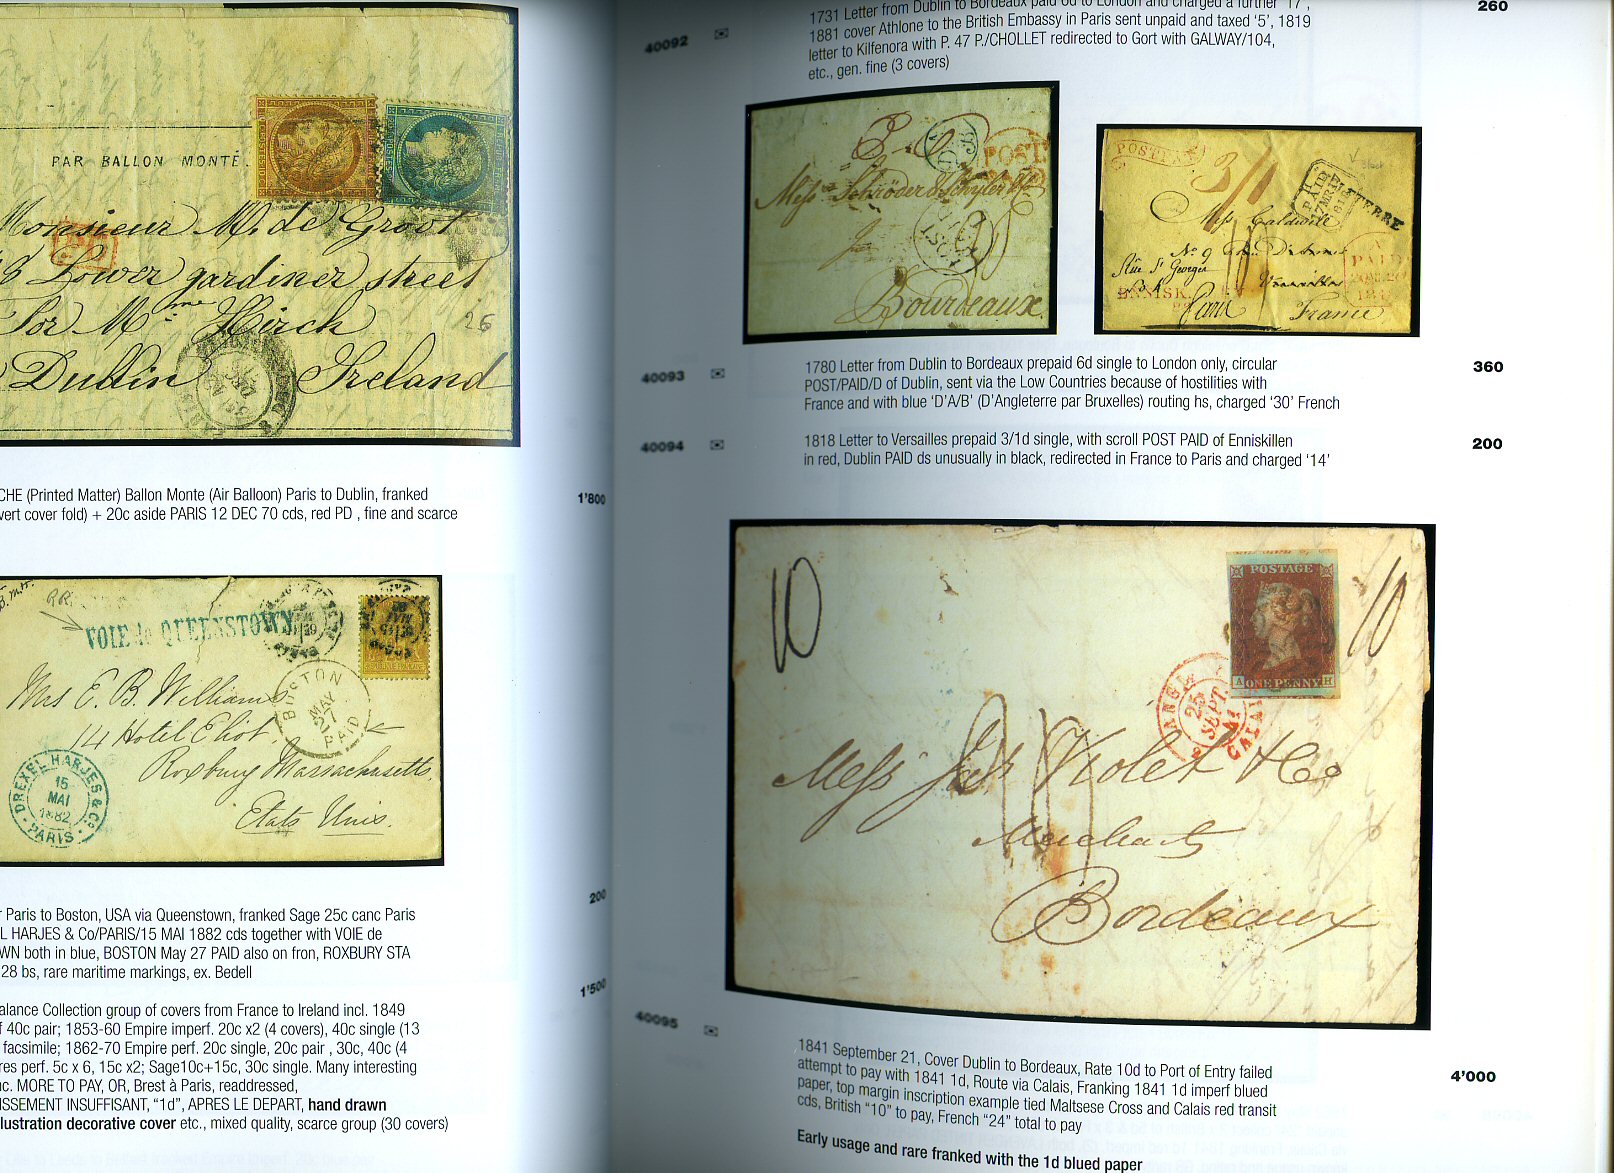 PAR BALLON MONTÉ.
Monsieur M. de Groot
Lower gardiner street
For Mme Hirch
26
Dublin Ireland
CHE (Printed Matter) Ballon Monte (Air Balloon) Paris to Dublin, franked
vert cover fold) + 20c aside PARIS 12 DEC 70 cds, red PD , fine and scarce
1'800
R.R.
VOIE de QUEENSTOWN
Mrs E. B. Williams
14 Hotel Eliot.
Roxbury Massachusetts
Etats Unis.
BOSTON
MAY
27
PAID
DREXEL HARJES & Co
15
MAI
1882
PARIS
200
r Paris to Boston, USA via Queenstown, franked Sage 25c canc Paris
L HARJES & Co/PARIS/15 MAI 1882 cds together with VOIE de
WN both in blue, BOSTON May 27 PAID also on fron, ROXBURY STA
28 bs, rare maritime markings, ex. Bedell
1'500
alance Collection group of covers from France to Ireland incl. 1849
f 40c pair; 1853-60 Empire imperf. 20c x2 (4 covers), 40c single (13
facsimile; 1862-70 Empire perf. 20c single, 20c pair , 30c, 40c (4
res perf. 5c x 6, 15c x2; Sage10c+15c, 30c single. Many interesting
nc. MORE TO PAY, OR, Brest à Paris, readdressed,
ISSEMENT INSUFFISANT, “1d”, APRES LE DEPART, hand drawn
llustration decorative cover etc., mixed quality, scarce group (30 covers)
40092
1731 Letter from Dublin to Bordeaux paid 6d to London and charged a further '17',
1881 cover Athlone to the British Embassy in Paris sent unpaid and taxed '5', 1819
letter to Kilfenora with P. 47 P./CHOLLET redirected to Gort with GALWAY/104,
etc., gen. fine (3 covers)
260
POST
Messrs Schröder & Schyler & Co
Bourdeaux
POST PAID
3/1
Black
Messrs Caldwell
No 9
Rue St Georges
Versailles
ENNISK
PAID
Paris France
40093
1780 Letter from Dublin to Bordeaux prepaid 6d single to London only, circular
POST/PAID/D of Dublin, sent via the Low Countries because of hostilities with
France and with blue 'D'A/B' (D'Angleterre par Bruxelles) routing hs, charged '30' French
360
40094
1818 Letter to Versailles prepaid 3/1d single, with scroll POST PAID of Enniskillen
in red, Dublin PAID ds unusually in black, redirected in France to Paris and charged '14'
200
10
POSTAGE
A ONE PENNY H
10
ANGL.
25
SEPT.
41
CALAIS
Messrs Jas Violet & Co
Merchants
Bordeaux
40095
1841 September 21, Cover Dublin to Bordeaux, Rate 10d to Port of Entry failed
attempt to pay with 1841 1d, Route via Calais, Franking 1841 1d imperf blued
paper, top margin inscription example tied Maltsese Cross and Calais red transit
cds, British “10” to pay, French “24” total to pay
4'000
Early usage and rare franked with the 1d blued paper